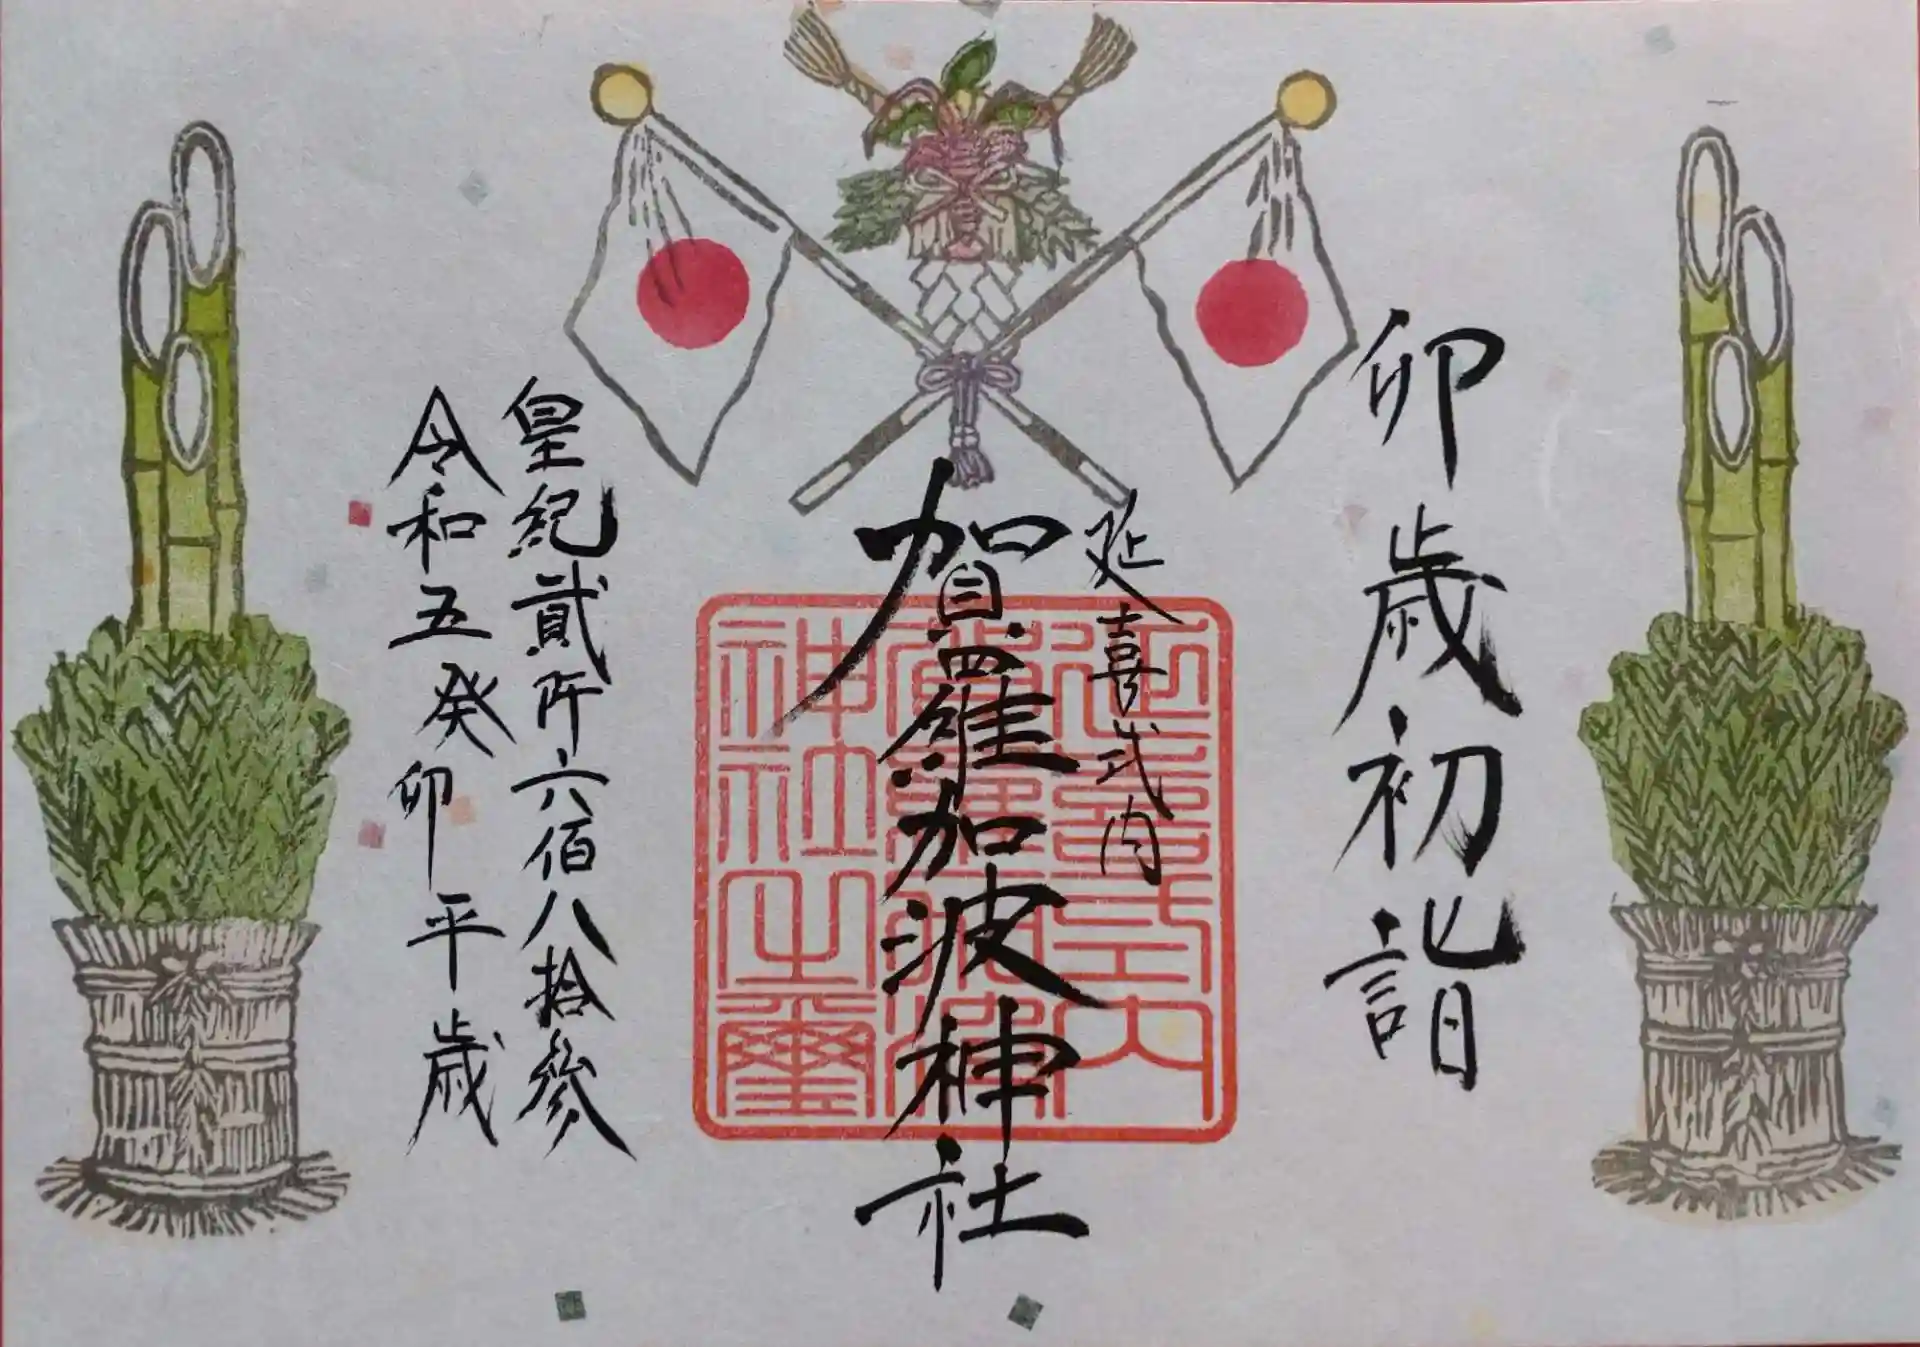 卯歳初詣
延喜式内
賀羅加波神社
皇紀貳阡六佰八拾参
令和五癸卯平歳
延喜式内
賀羅加波
神社之璽